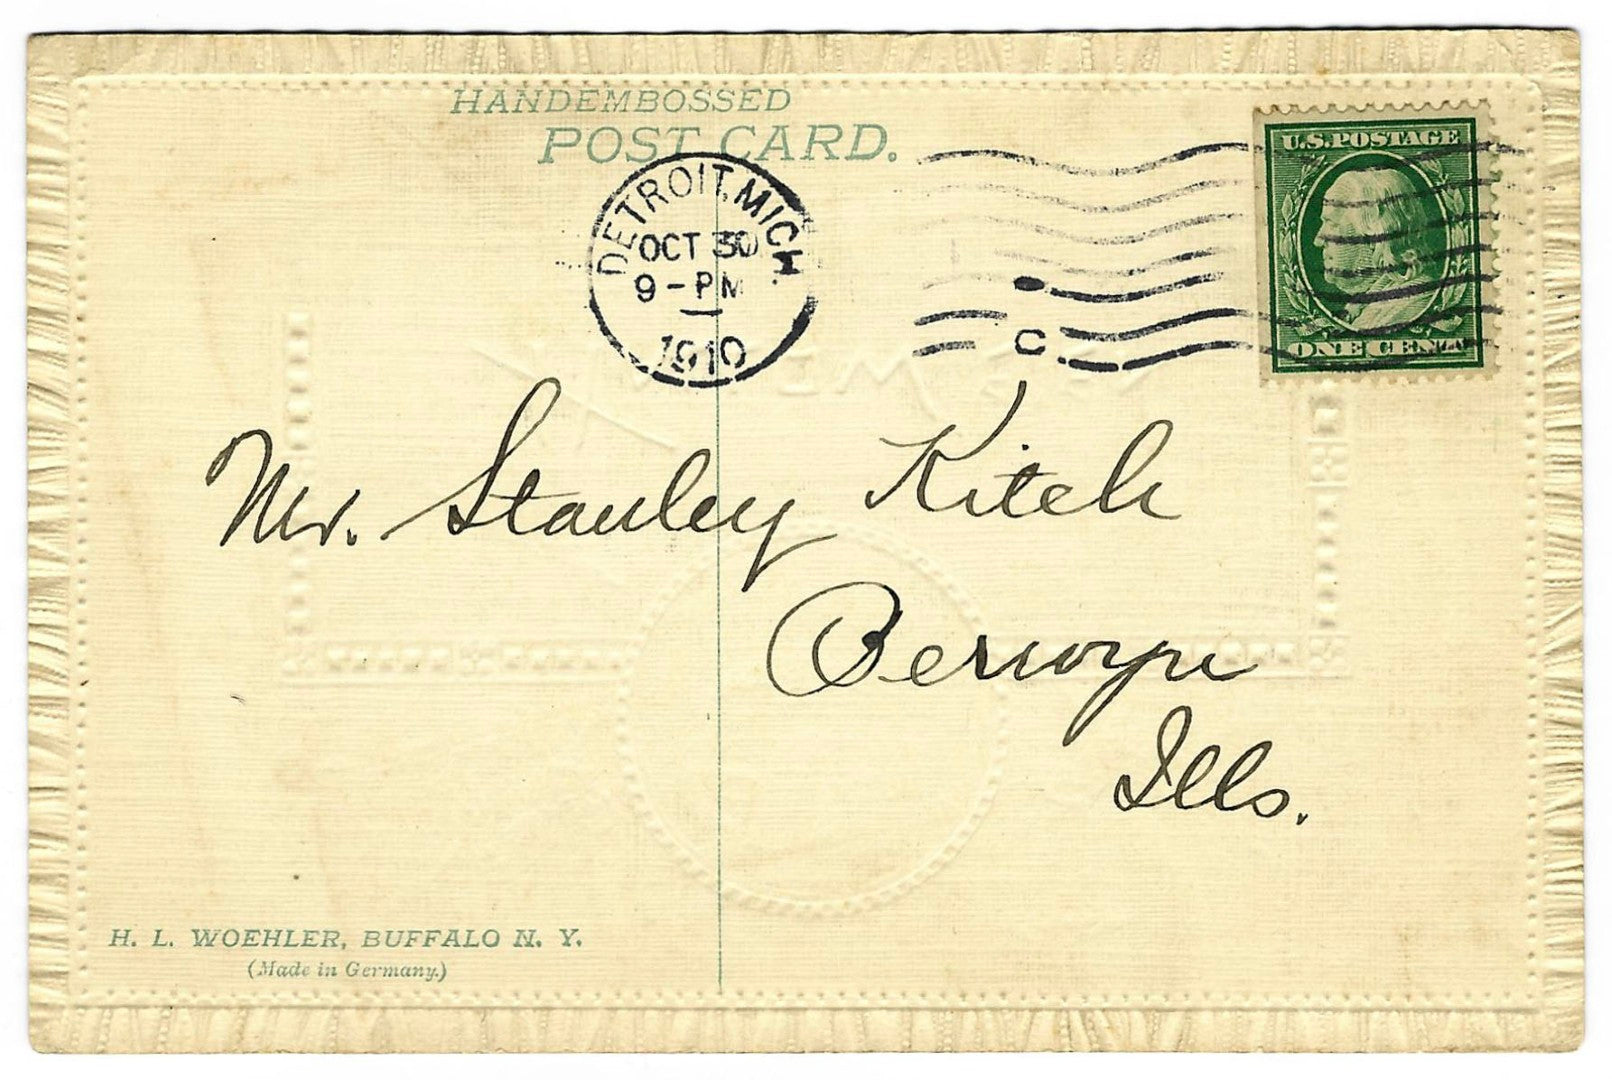 HANDEMBOSSED
POST CARD.
DETROIT, MICH.
OCT 30
9-PM
1910
C
U.S. POSTAGE
ONE CENT
Mr. Stanley Kitch
Berwyn
Ills.
H. L. WOEHLER, BUFFALO N. Y.
(Made in Germany.)